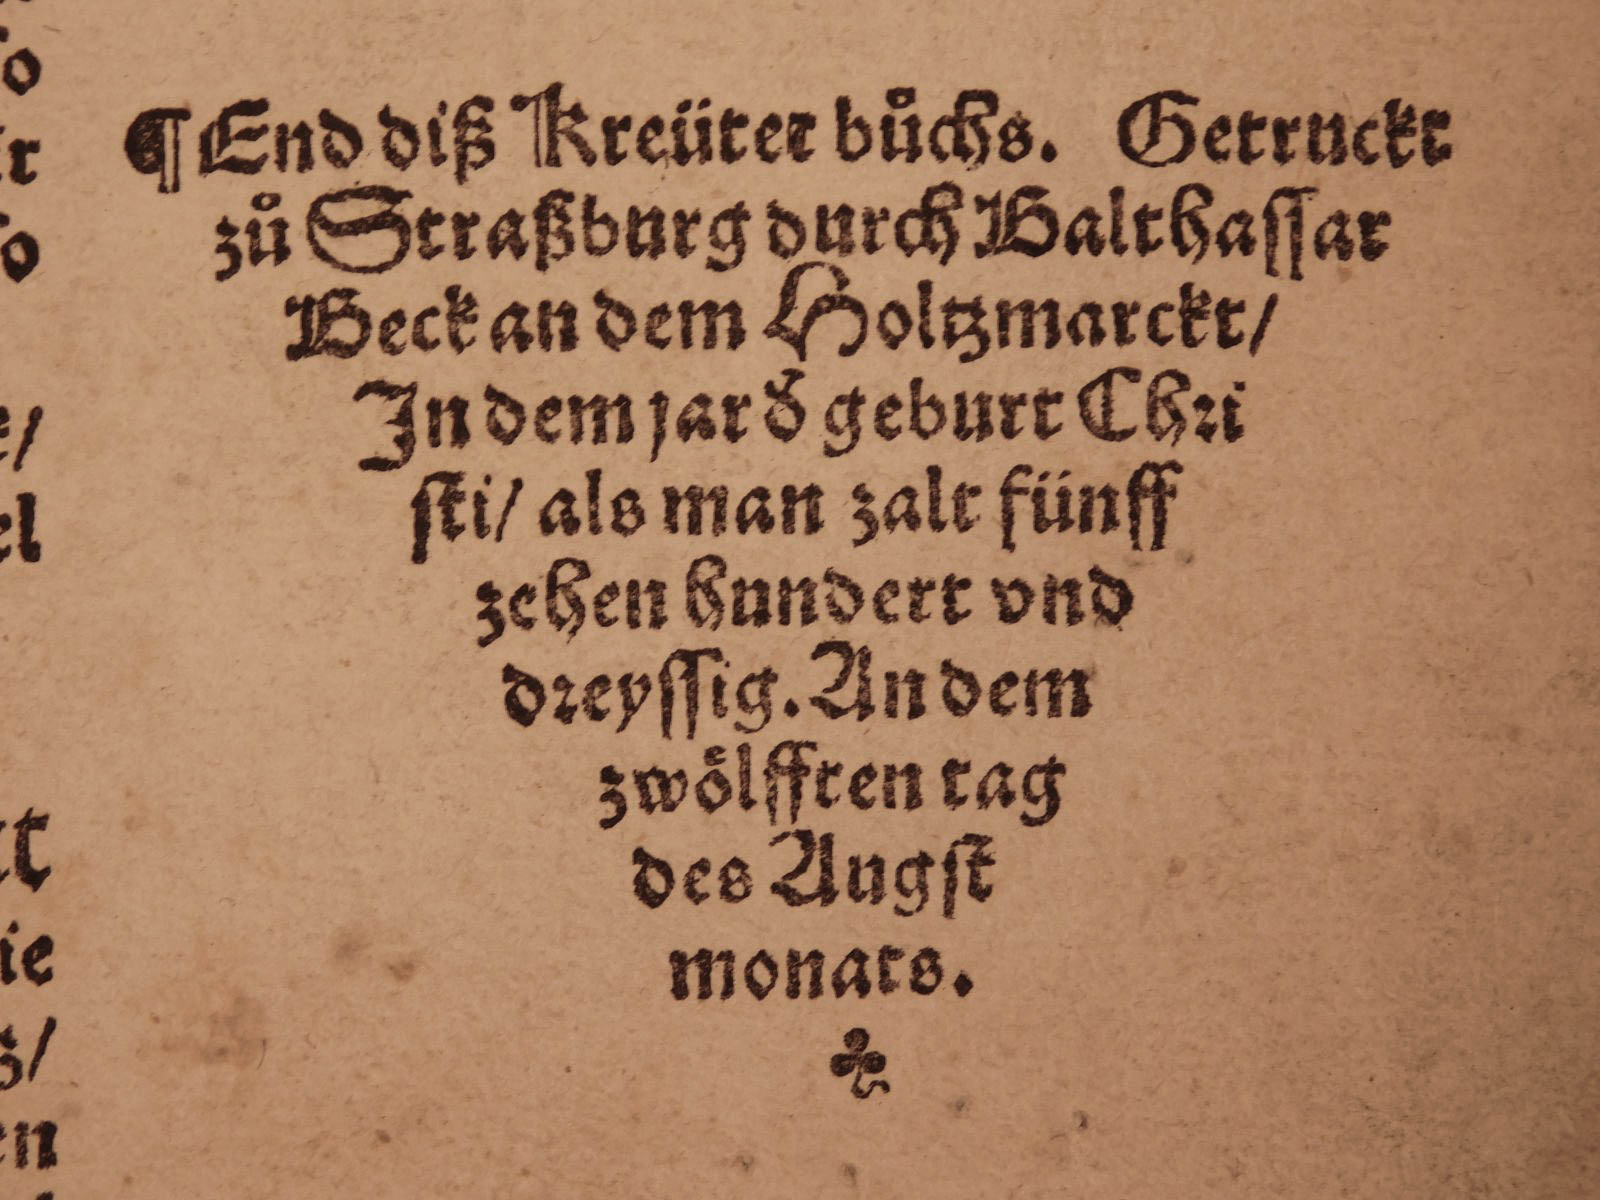 ¶ End diß Kreüter bůchs. Getruckt
zů Straßburg durch Balthassar
Beck an dem Holtzmarckt/
In dem jar d̕ geburt Chri
sti/ als man zalt fünff
zehen hundert vnd
dreyssig. An dem
zwölfften tag
des Augst
monats.